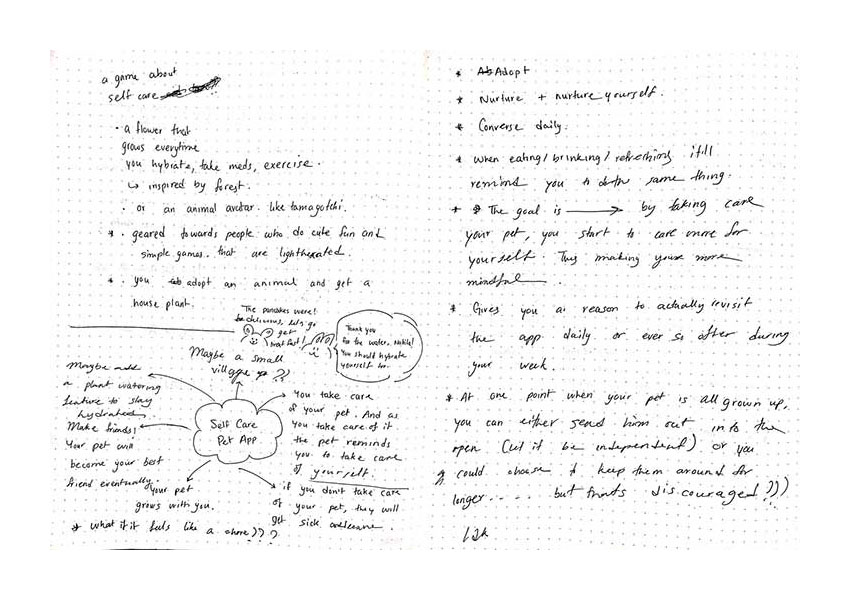 a game about
self care
· a flower that
grows everytime
you hybrate, take meds, exercise.
↳ inspired by forest.
· or an animal avatar. like tamagotchi.
* · geared towards people who do cute fun and
simple games. that are lighthearted.
* · you adopt an animal and get a
house plant.
The pancakes were!
delicious, let's go
get
Thank you
for the water, Nikita!
You should hybrate
yourself too.
Maybe a small
village ??
Maybe add
a plant watering
feature to stay
hydrated.
Make friends!
Your pet will
become your best
friend eventually.
Self Care
Pet App
You take care
of your pet. And as
you take care of it
the pet reminds
you to take care
of yourself.
your pet
grows with you.
if you don't take care
of your pet, they will
get sick and leave.
* what if it feels like a chore)) ?
* Adopt
* Nurture + nurture yourself.
* Converse daily.
* when eating/brinking/refreshing it'll
remind you to do the same thing.
* The goal is → by taking care
your pet, you start to care more for
yourself. Thus making you more
mindful.
* Gives you a reason to actually revisit
the app daily or ever so often during
your week.
* At one point when your pet is all grown up,
you can either send him out into the
open (let it be independent) or you
could choose to keep them around for
longer.... but that's discouraged?))